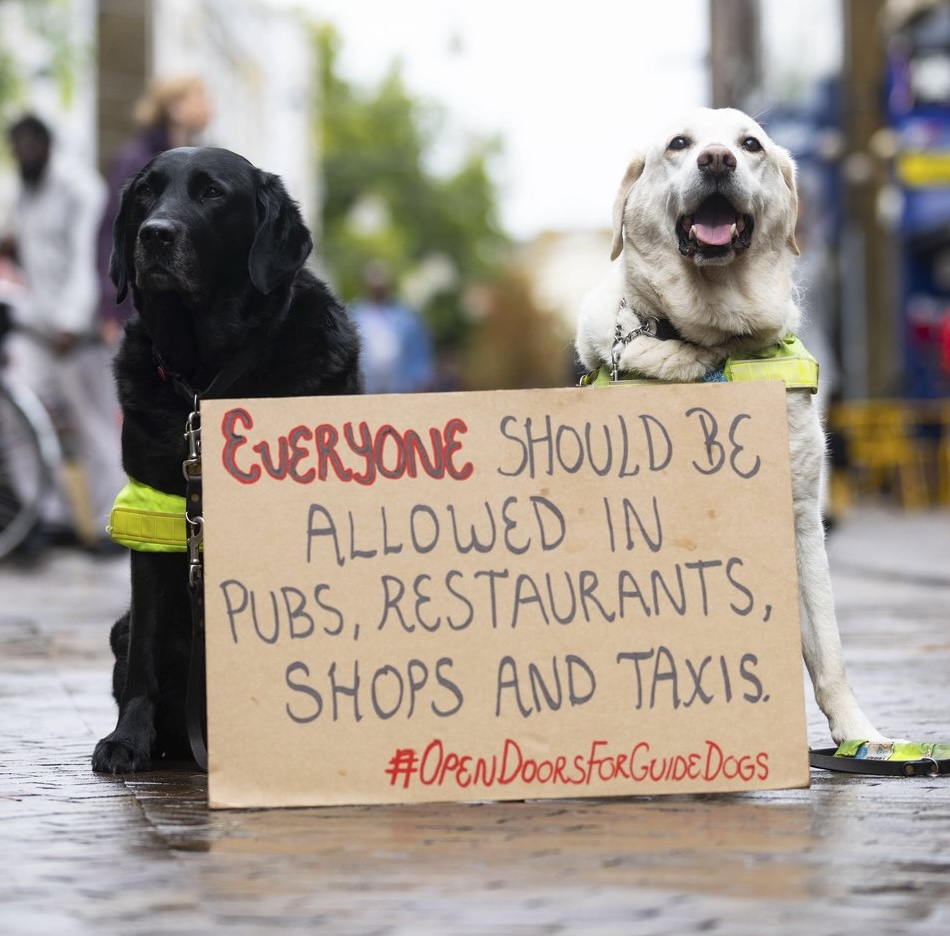 EVERYONE SHOULD BE
ALLOWED IN
PUBS, RESTAURANTS,
SHOPS AND TAXIS.
#OPENDOORSFORGUIDEDOGS